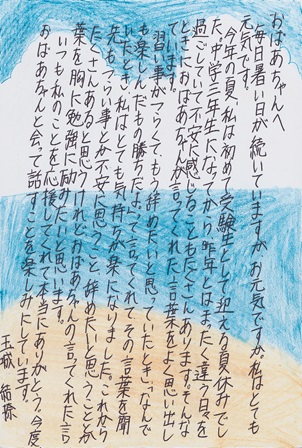 おばあちゃんへ
毎日暑い日が続いていますが、お元気ですか。私はとても
元気です。
今年の夏、私は初めて受験生として迎える夏休みでし
た。中学三年生になってから昨年とはまったく違う日々を
過ごしていて不安に感じることもたくさんあります。そんな
ときにおばあちゃんが言ってくれた言葉をよく思い出し
ています。
習い事がつらくて、もう辞めたいと思っていたとき、「なんで
も楽しんだもの勝ちだよ。」って言ってくれて、その言葉を聞
いたとき、私はとても気持ちが楽になりました。これから
先も、つらい事とか不安に思うこと、辞めたいと思うことが
たくさんあると思うけれどおばあちゃんの言ってくれた言
葉を胸に勉強に励みたいと思います。
いつも私のことを応援してくれて本当にありがとう。今度
おばあちゃんと会って話すことを楽しみにしています。
玉城 結